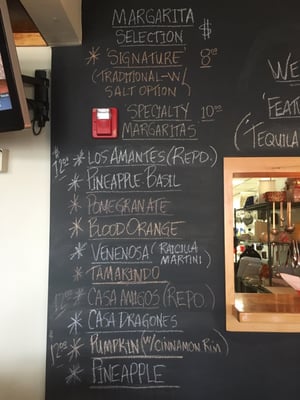 MARGARITA
SELECTION $
* 'SIGNATURE' 8.00
(TRADITIONAL-W/
SALT OPTION)
SPECIALTY 10.00
MARGARITAS
$12.00 * LOS AMANTES (REPO.)
* PINEAPPLE BASIL
* POMEGRANATE
* BLOOD ORANGE
* VENENOSA (RAICILLA
MARTINI)
* TAMARINDO
12.00 * CASA AMIGOS (REPO.)
* CASA DRAGONES
$12.00 * PUMPKIN (W/CINNAMON RIM)
* PINEAPPLE
WE
'FEAT
(TEQUILA